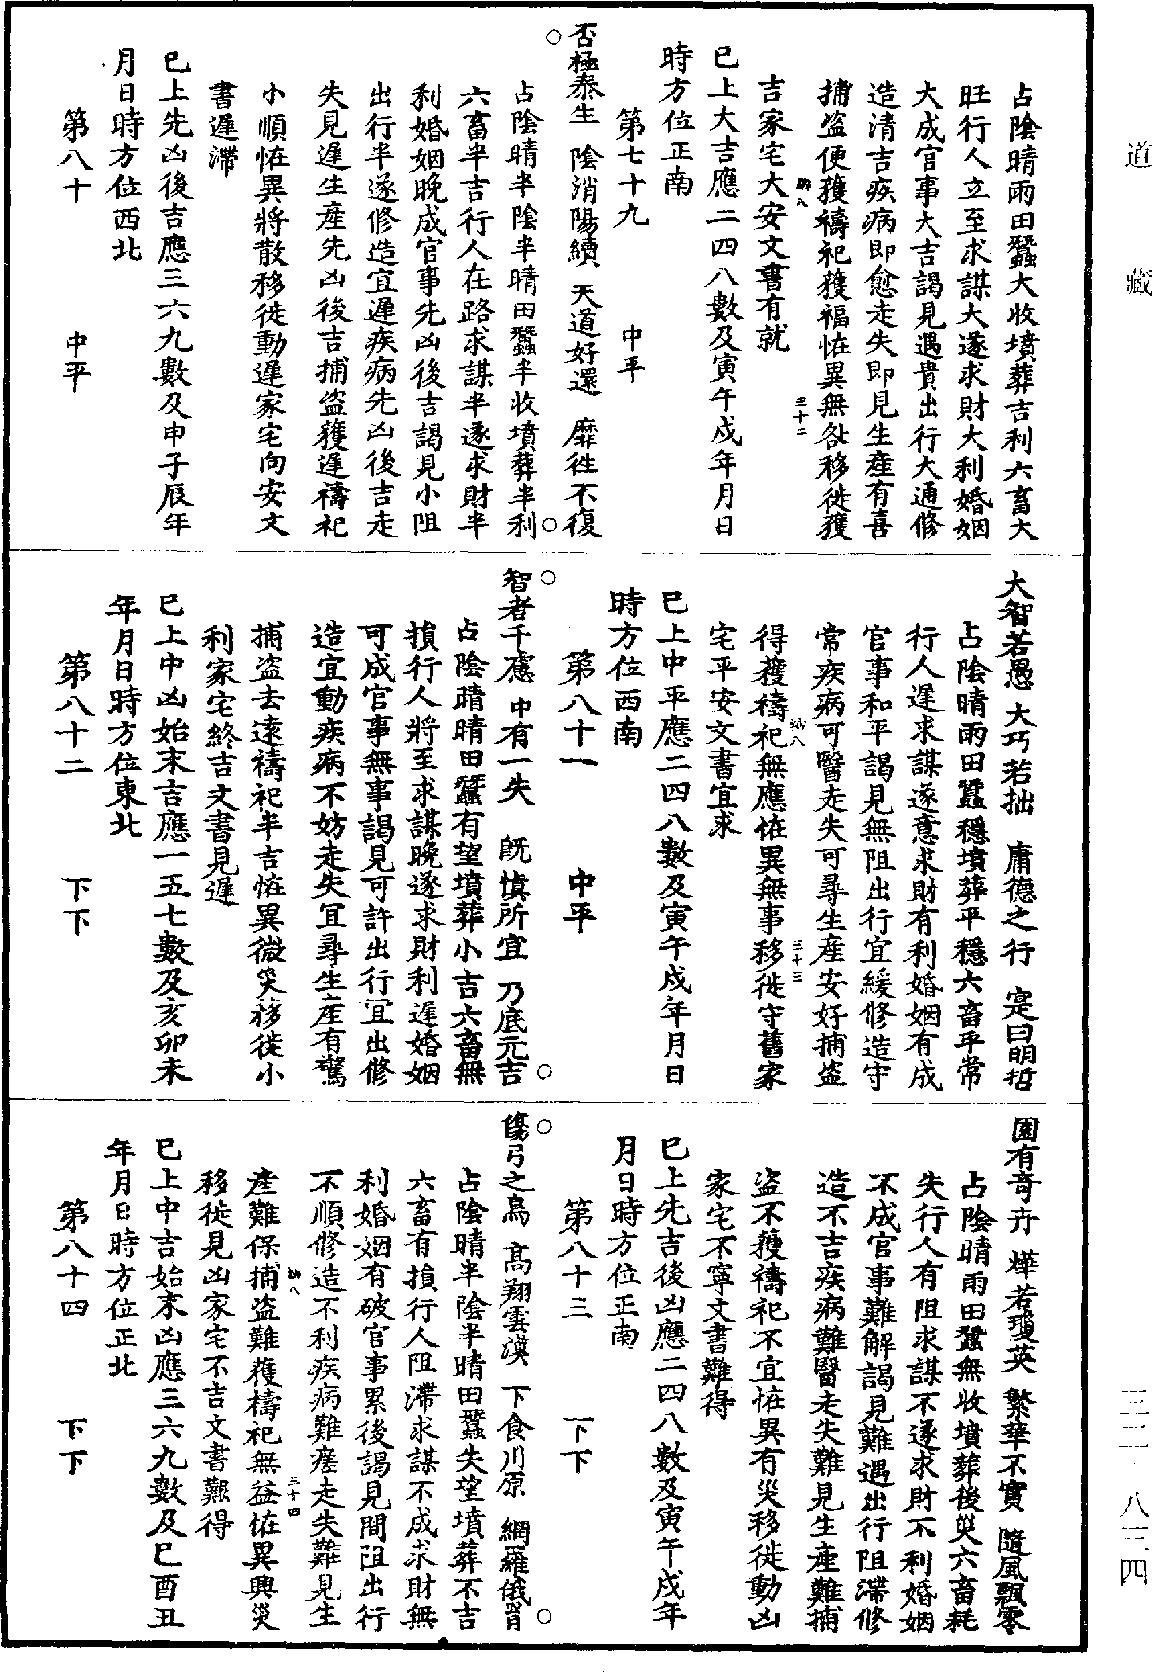 道藏
占陰晴雨田蠶大收墳葬吉利六畜大
旺行人立至求謀大遂求財大利婚姻
大成官事大吉謁見遇貴出行大通修
造清吉疾病即愈走失即見生產有喜
捕盜便獲禱祀獲福恠異無咎移徙獲
吉家宅大安文書有就
三十二
巳上大吉應二四八數及寅午戌年月日
時方位正南
第七十九 中平
否極泰生 陰消陽續 天道好還 靡徃不復
占陰晴半陰半晴田蠶半收墳葬半利
六畜半吉行人在路求謀半遂求財半
利婚姻晚成官事先凶後吉謁見小阻
出行半遂修造宜遲疾病先凶後吉走
失見遲生產先凶後吉捕盜獲遲禱祀
小順恠異將散移徙動遲家宅向安文
書遲滯
巳上先凶後吉應三六九數及申子辰年
月日時方位西北
第八十 中平
大智若愚 大巧若拙 庸德之行 寔曰明哲
占陰晴雨田蠶穩墳葬平穩六畜平常
行人遲求謀遂意求財有利婚姻有成
官事和平謁見無阻出行宜緩修造守
常疾病可醫走失可尋生產安好捕盜
得獲禱祀無應恠異無事移徙守舊家
三十三
宅平安文書宜求
巳上中平應二四八數及寅午戌年月日
時方位西南
第八十一 中平
智者千慮 中有一失 旣慎所宜 乃底元吉
占陰晴晴田蠶有望墳葬小吉六畜無
損行人將至求謀晚遂求財利遲婚姻
可成官事無事謁見可許出行宜出修
造宜動疾病不妨走失宜尋生產有驚
捕盜去遠禱祀半吉恠異微災移徙小
利家宅終吉文書見遲
巳上中凶始末吉應一五七數及亥卯未
年月日時方位東北
第八十二 下下
園有奇卉 燁若瓊英 繁華不實 隨風飄零
占陰晴雨田蠶無收墳葬後災六畜耗
失行人有阻求謀不遂求財不利婚姻
不成官事難解謁見難遇出行阻滯修
造不吉疾病難醫走失難見生產難捕
盜不獲禱祀不宜恠異有災移徙動凶
家宅不寧文書難得
巳上先吉後凶應二四八數及寅午戌年
月日時方位正南
第八十三 下下
傷弓之鳥 高翔雲漢 下食川原 網羅俄罥
占陰晴半陰半晴田蠶失望墳葬不吉
六畜有損行人阻滯求謀不成求財無
利婚姻有破官事累後謁見間阻出行
不順修造不利疾病難瘥走失難見生
產難保捕盜難獲禱祀無益恠異興災
三十四
移徙見凶家宅不吉文書難得
巳上中吉始末凶應三六九數及巳酉丑
年月日時方位正北
第八十四 下下
三二 八三四